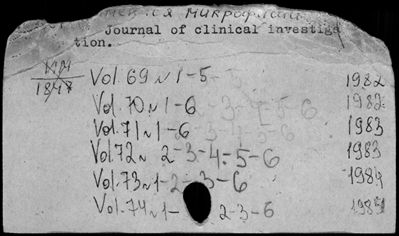 имеется микрофильм
Journal of clinical investiga
tion.
1848
Vol. 69 N 1-5 1982
Vol. 70 N 1-6 1982
Vol. 71 N 1-6 1983
Vol. 72 N 2-3-4-5-6 1983
Vol. 73 N 1-2-3-6 1984
Vol. 74 N 1- 2-3-6 1984